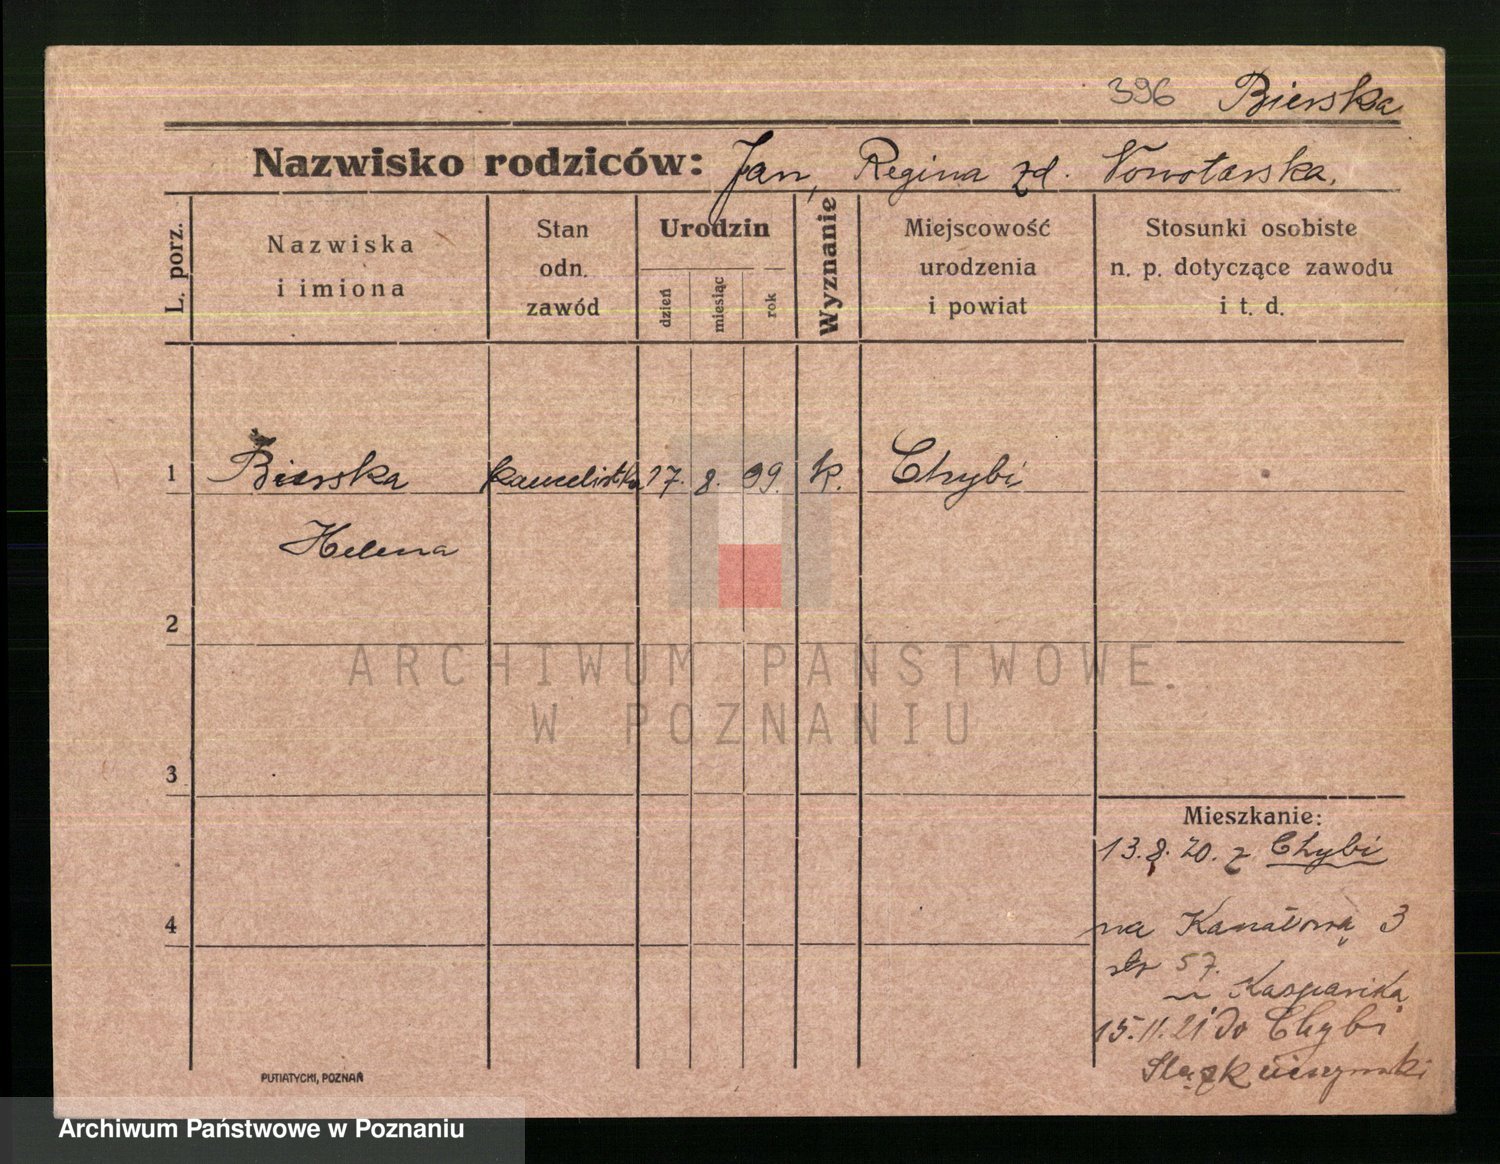 396 Bierska
Nazwisko rodziców: Jan, Regina zd. Nowotarska.
L. porz.
Nazwiska
i imiona
Stan
odn.
zawód
Urodzin
dzień
miesiąc
rok
Wyznanie
Miejscowość
urodzenia
i powiat
Stosunki osobiste
n. p. dotyczące zawodu
i t. d.
1 Bierska kancelistka 17. 8. 99. k. Chybi
Helena
2
3
4
ARCHIWUM PAŃSTWOWE
W POZNANIU
Mieszkanie:
13.8.20. z Chybi
na Kanałową 3
57.
u Kasparika
15.11.21 do Chybi
Śląsk cieszyński
PUTIATYCKI, POZNAŃ
Archiwum Państwowe w Poznaniu